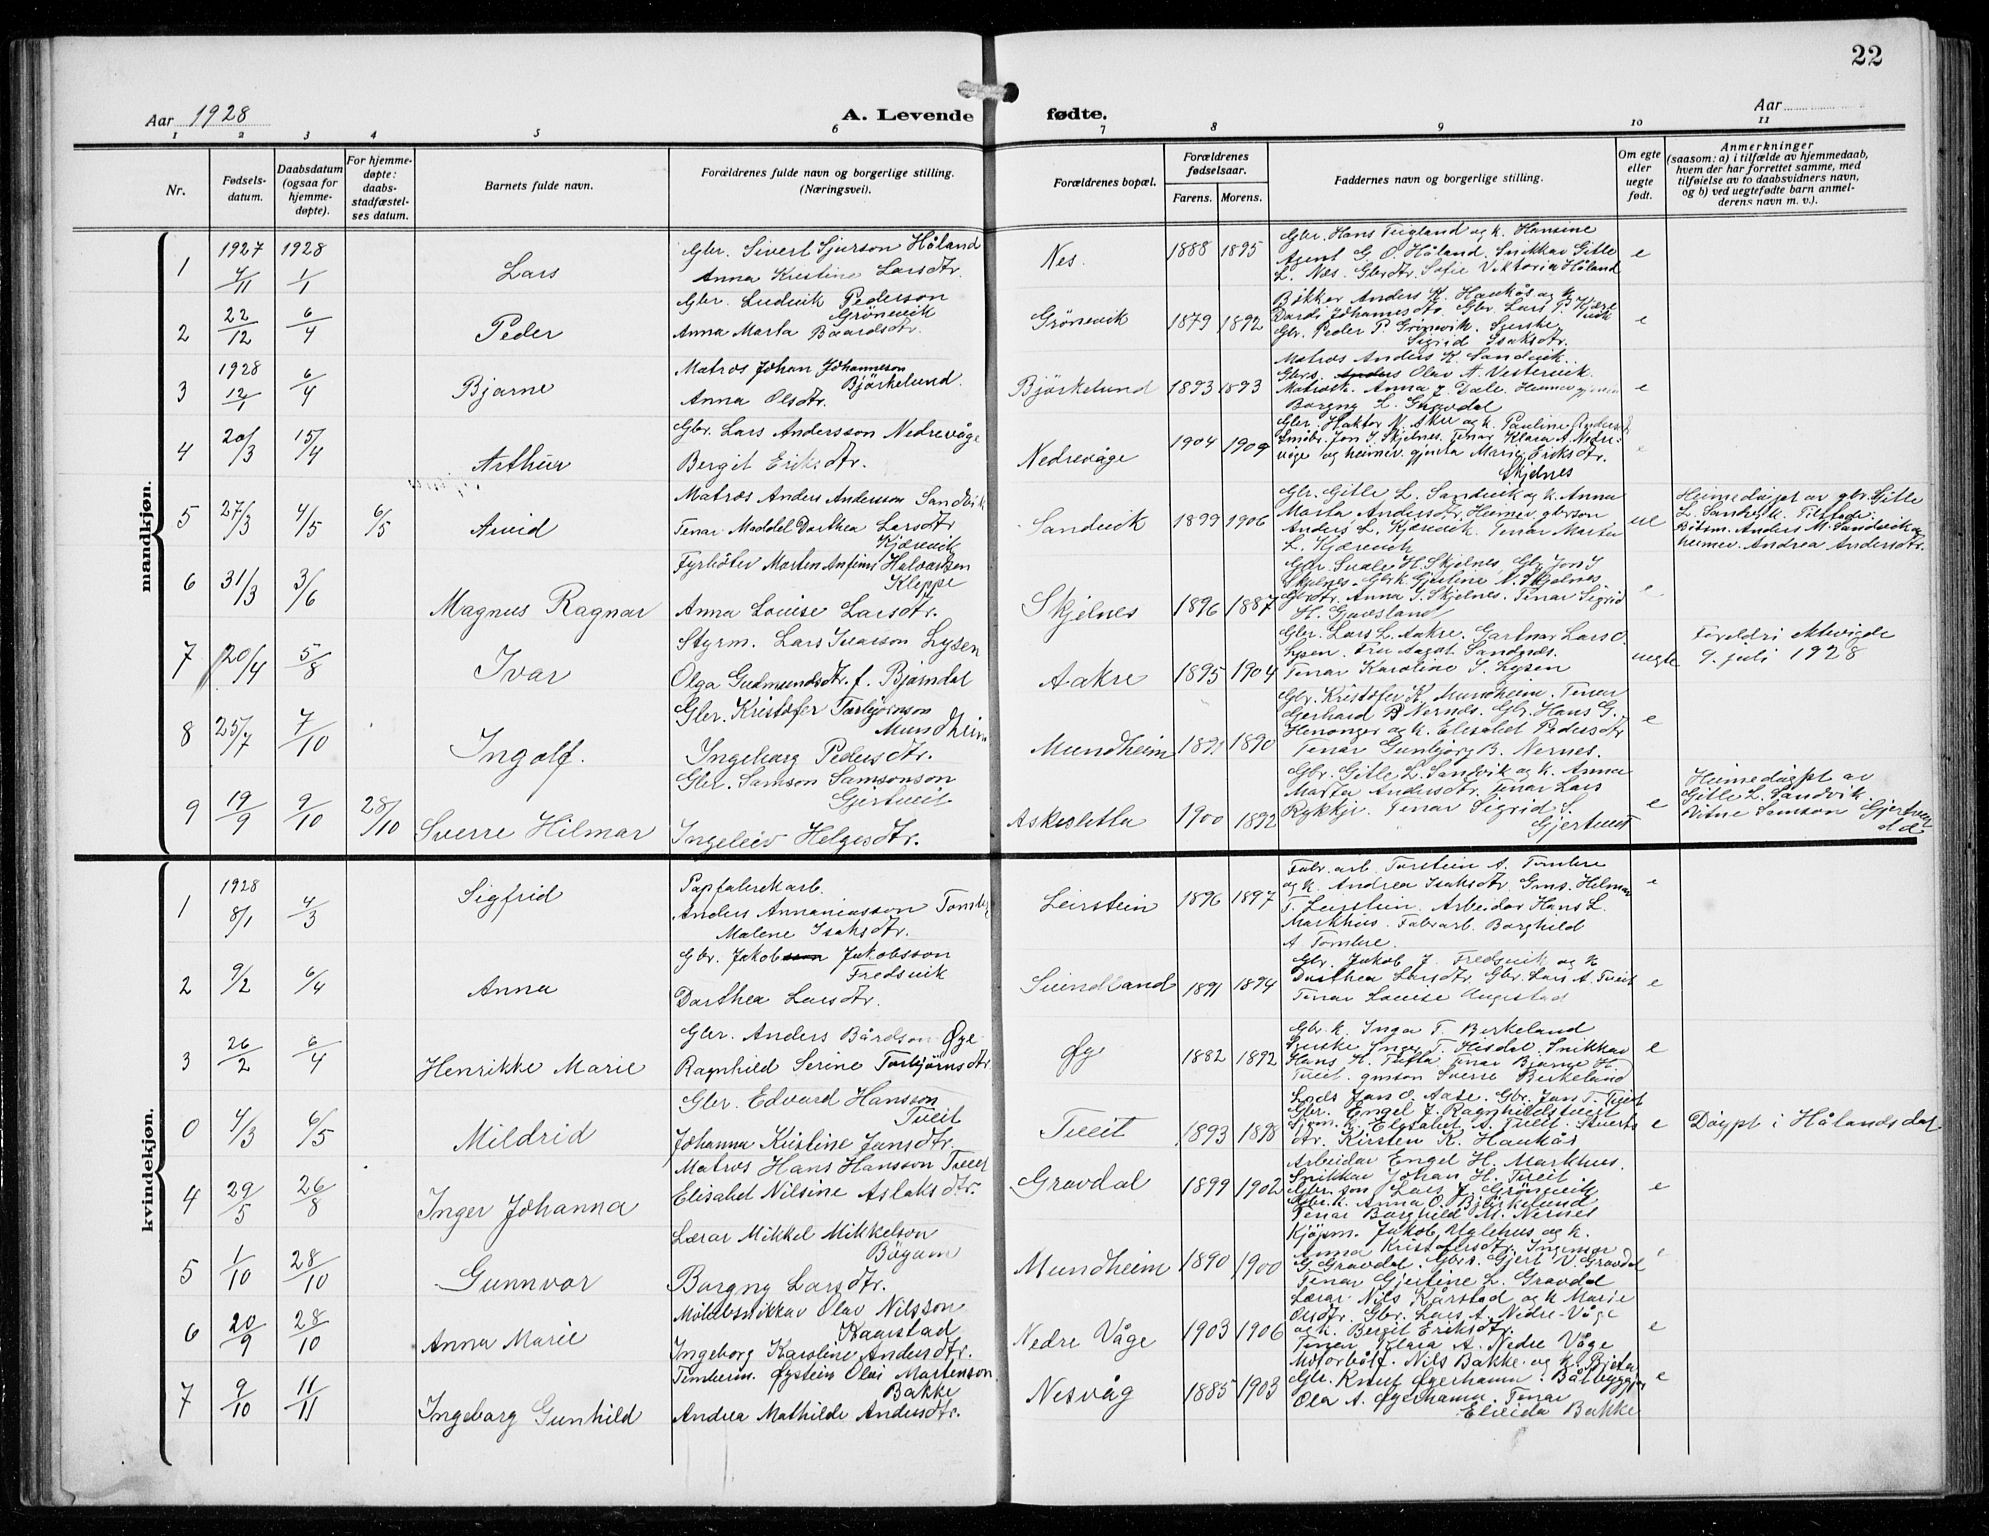 22
Aar 1928
A. Levende
fødte.
Aar
1 2 3 4 5 6 7 8 9 10 11
Nr.
Fødsels-
datum.
Daabsdatum
(ogsaa for
hjemme-
døpte).
For hjemme-
døpte:
daabs-
stadfæstel-
ses datum.
Barnets fulde navn.
Forældrenes fulde navn og borgerlige stilling.
(Næringsvei).
Forældrenes bopæl.
Forældrenes
fødselsaar.
Farens. Morens.
Faddernes navn og borgerlige stilling.
Om egte
eller
uegte
født.
Anmerkninger
(saasom: a) i tilfælde av hjemmedaab,
hvem der har forrettet samme, med
tilføielse av to daabsvidners navn,
og b) ved uegtefødte barn anmel-
derens navn m. v.).
mandkjøn.
1
1927 4/11
1928 1/1
Lars
Gbr. Sivert Sjurson Håland
Anna Kristine Larsdtr.
Nes.
1888 1895
Gbr. Hans Teigland og k. Hansine
Agent G. O. Håland. Snikkar Gitle
L. Nes. Gbrdtr. Sofie Viktoria Håland
e
2
22/12
6/4
Peder
Gbr. Ludvik Pederson
Grönevik
Anna Marta Baardsdtr.
Grönevik
1879 1892
Bökkar Anders K. Haukås og k
Gbr. Peder P. Grönevik.
Sigrid Isaksdtr.
e
3
1928 12/1
6/4
Bjarne
Matros Johan Johanneson
Björkelund.
Anna Olsdtr.
Björkelund
1893 1893
Matros Anders K. Sandvik.
Olav A. Vestervik.
Anna J. Dale.
Borgny L. Gravdal
e
4
20/3
15/4
Arthur
Gbr. Lars Andersson Nedrevåge
Bergit Eriksdtr.
Nedrevåge
1904 1909
Jon J. Skjelnes. Tenar Klara A. Nedre-
våge og heimev. gjenta Marie Eriksdtr.
Skjelnes
e
5
27/3
4/5
6/5
Arvid
Matros Anders Andersson Sandvik
Tenar Maddel Dorthea Larsdtr
Kjærevik
Sandvik
1899 1906
Gbr. Gitle L. Sandvik og k. Anna
Marta Andersdtr. Heimev. gbrson
Anders L. Kjærevik. Tenar Marta
L. Kjærevik
ue
Heimedöypt av gbr. Gitle
L. Sandvik. Tilstade:
Båtsm. Anders M. Sandvik og
heimev. Andrea Andersdtr.
6
31/3
3/6
Magnus Ragnar
Fyrböter Morten Anfinn Halvorsen
Kleppe
Anna Louise Larsdtr.
Skjelnes
1896 1887
H. Skjelnes, Gbr. Jon J
Skjelnes. Gbrk. Gjertine N. Skjelnes
Gbrdtr. Anna J. Skjelnes. Tenar Sigrid
H. Gravsland
e
7
20/4
5/8
Ivar
Styrm. Lars Ivarson Lysen
Olga Gudmundsdtr. f. Björndal
Aakre
1895 1904
Gbr. Lars L. Aakre. Gartnar Lars O.
Lysen. Fru Aagot Sandnæs.
Tenar Karoline S. Lysen
uegte
Foreldri ektevigde
9. juli 1928
8
25/7
7/10
Ingolf.
Gbr. Kristofer Torbjörnson
Mundheim
Ingeborg Pedersdtr.
Mundheim
1890
Gbr. Kristofer K. Mundheim. Tenar
Gerhard B. Nernes. Gbr. Hans G.
Henanger og k. Elisabet Pedersdtr
Tenar Gunbjörg B. Nernes.
e
9
19/9
9/10
28/10
Sverre Hilmar
Gbr. Samson Samsonson
Gjertveit
Ingeleiv Helgesdtr.
Askesletta
1900 1892
Gbr. Gitle L. Sandvik og k. Anna
Marta Andersdtr. Tenar Lars
Rykkje. Tenar Sigrid S.
Gjertveit
e
Heimedöypt av
Gitle L. Sandvik.
Vitne Samson Gjertveit
kvindekjøn.
1
1928 8/1
4/3
Sigfrid
Papfabrekarb.
Anders Annaniasson Tombre
Malene Isaksdtr.
Leirstein
1896 1897
Fabr. arb. Torstein A. Tombre
og k. Andrea Isaksdtr. Gms. Hilmar
T. Leirstein. Arbeidar Hans L.
Markhus. Fabr. arb. Borghild
A. Tombre.
e
2
9/2
6/4
Anna
Gbr. Jakob Jakobsson
Fredsvik
Dorthea Larsdtr.
Svindland
1891 1894
Gbr. Jakob J. Fredsvik og k
Dorthea Larsdtr. Gbr. Lars A. Tveit
Tenar Louise Augestad
e
3
26/2
6/4
Henrikke Marie
Gbr. Anders Bårdson Øye
Ragnhild Serine Torbjörnsdtr
Øy
1882 1892
Gbr. k. Inga T. Berkeland
Inger T. Hisdal. Snikkar
Hans H. Tufta Tenar Bjarne H.
Tveit. gmson Sverre Berkeland
e
0
4/3
6/5
Mildrid
Gbr. Edvard Hansson
Tveit
Johanna Kristine Jansdtr.
Tveit
1893 1898
Lods Jan O. Aase. Gbr. Jan T. Tveit
Gbr. Engel J. Ragnhildstveit
Elisabet A. Tveit.
Kirsten K. Haukås
e
Döypt i Hålandsdal
4
29/5
26/8
Inger Johanna
Matros Hans Hansson Tveit
Elisabet Nilsine Aslaksdtr.
Gravdal
1899 1902
Arbeidar Engel H. Markhus.
Snikkar Johan H. Tveit
Gbr. son Lars J. Grönevik
Gbr. k. Anna O. Björkelund
Tenar Borghild M. Nernes
e
5
1/10
28/10
Gunnvor
Lærar Mikkel Mikkelson
Bögam
Borgny Larsdtr.
Mundheim
1890 1900
Kjöpm. Jakob Uglehus og k.
Anna Kristofersdtr. Ingemar
G. Gravdal. Gbrs. Gjert V. Gravdal
Tenar Gjertine L. Gravdal
6
20/9
28/10
Anna Marie
Möbelsnikkar Olav Nilsson
Kaarstad
Ingeborg Karoline Andersdtr.
Nedre Våge
1903 1906
Lærar Nils Kårstad og k Marie
Olsdtr. Gbr. Lars A. Nedre-Våge
og k. Bergit Eriksdtr.
Tenar Klara A. Nedre Våge
e
7
9/10
11/11
Ingeborg Gunhild
Tömberm. Øystein Olai Martenson
Bakke
Andrea Mathilde Andersdtr.
Nesvåg
1885 1903
Nils Bakke og k. Brita
Gbr. Knut Øyerhamn. Båtbyggjar
Ola A. Øyerhamn. Tenar
Elvida Bakke
e